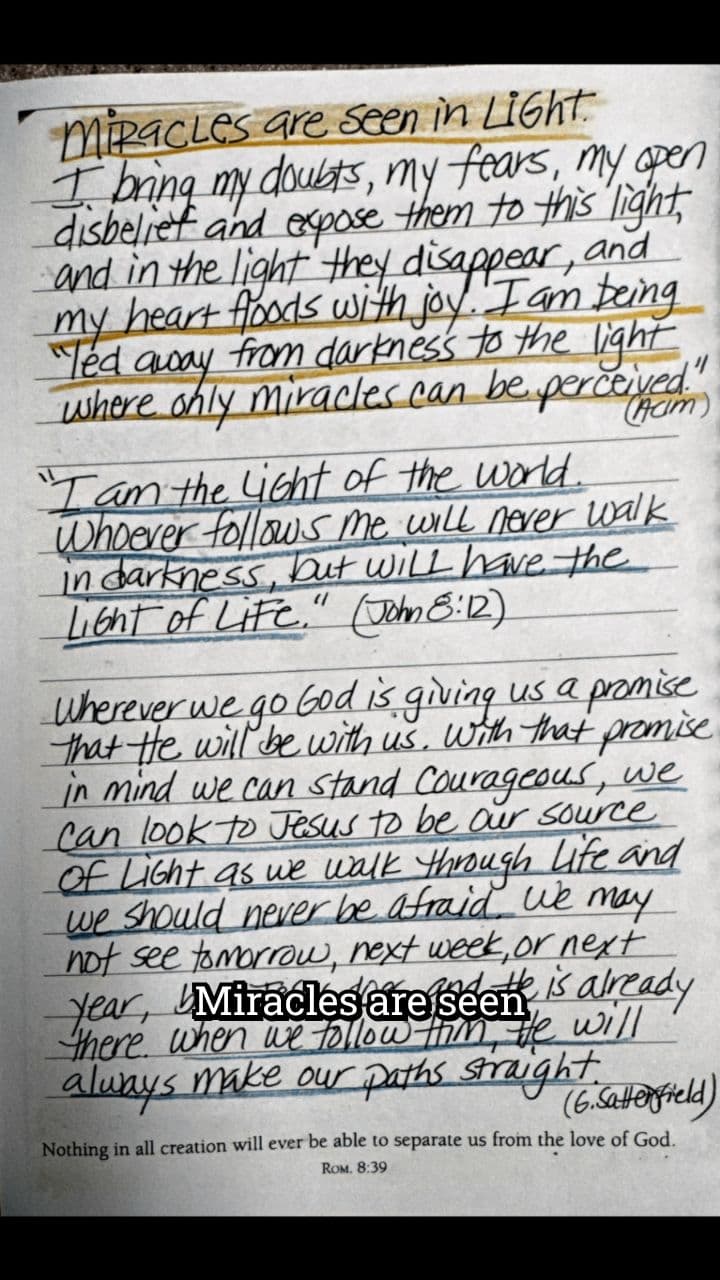 Miracles are seen in Light.
I bring my doubts, my fears, my open
disbelief and expose them to this light,
and in the light they disappear, and
my heart floods with joy. I am being
"led away from darkness to the light
where only miracles can be perceived."
(Acim)
"I am the Light of the world.
Whoever follows me will never walk
in darkness, but will have the
Light of Life." (John 8:12)
Wherever we go God is giving us a promise
that He will be with us. With that promise
in mind we can stand Courageous, we
can look to Jesus to be our source
of Light as we walk through Life and
we should never be afraid. We may
not see tomorrow, next week, or next
year, and He is already
Miracles are seen
there. When we follow Him, He will
always make our paths straight.
(G. Satterfield)
Nothing in all creation will ever be able to separate us from the love of God.
Rom. 8:39